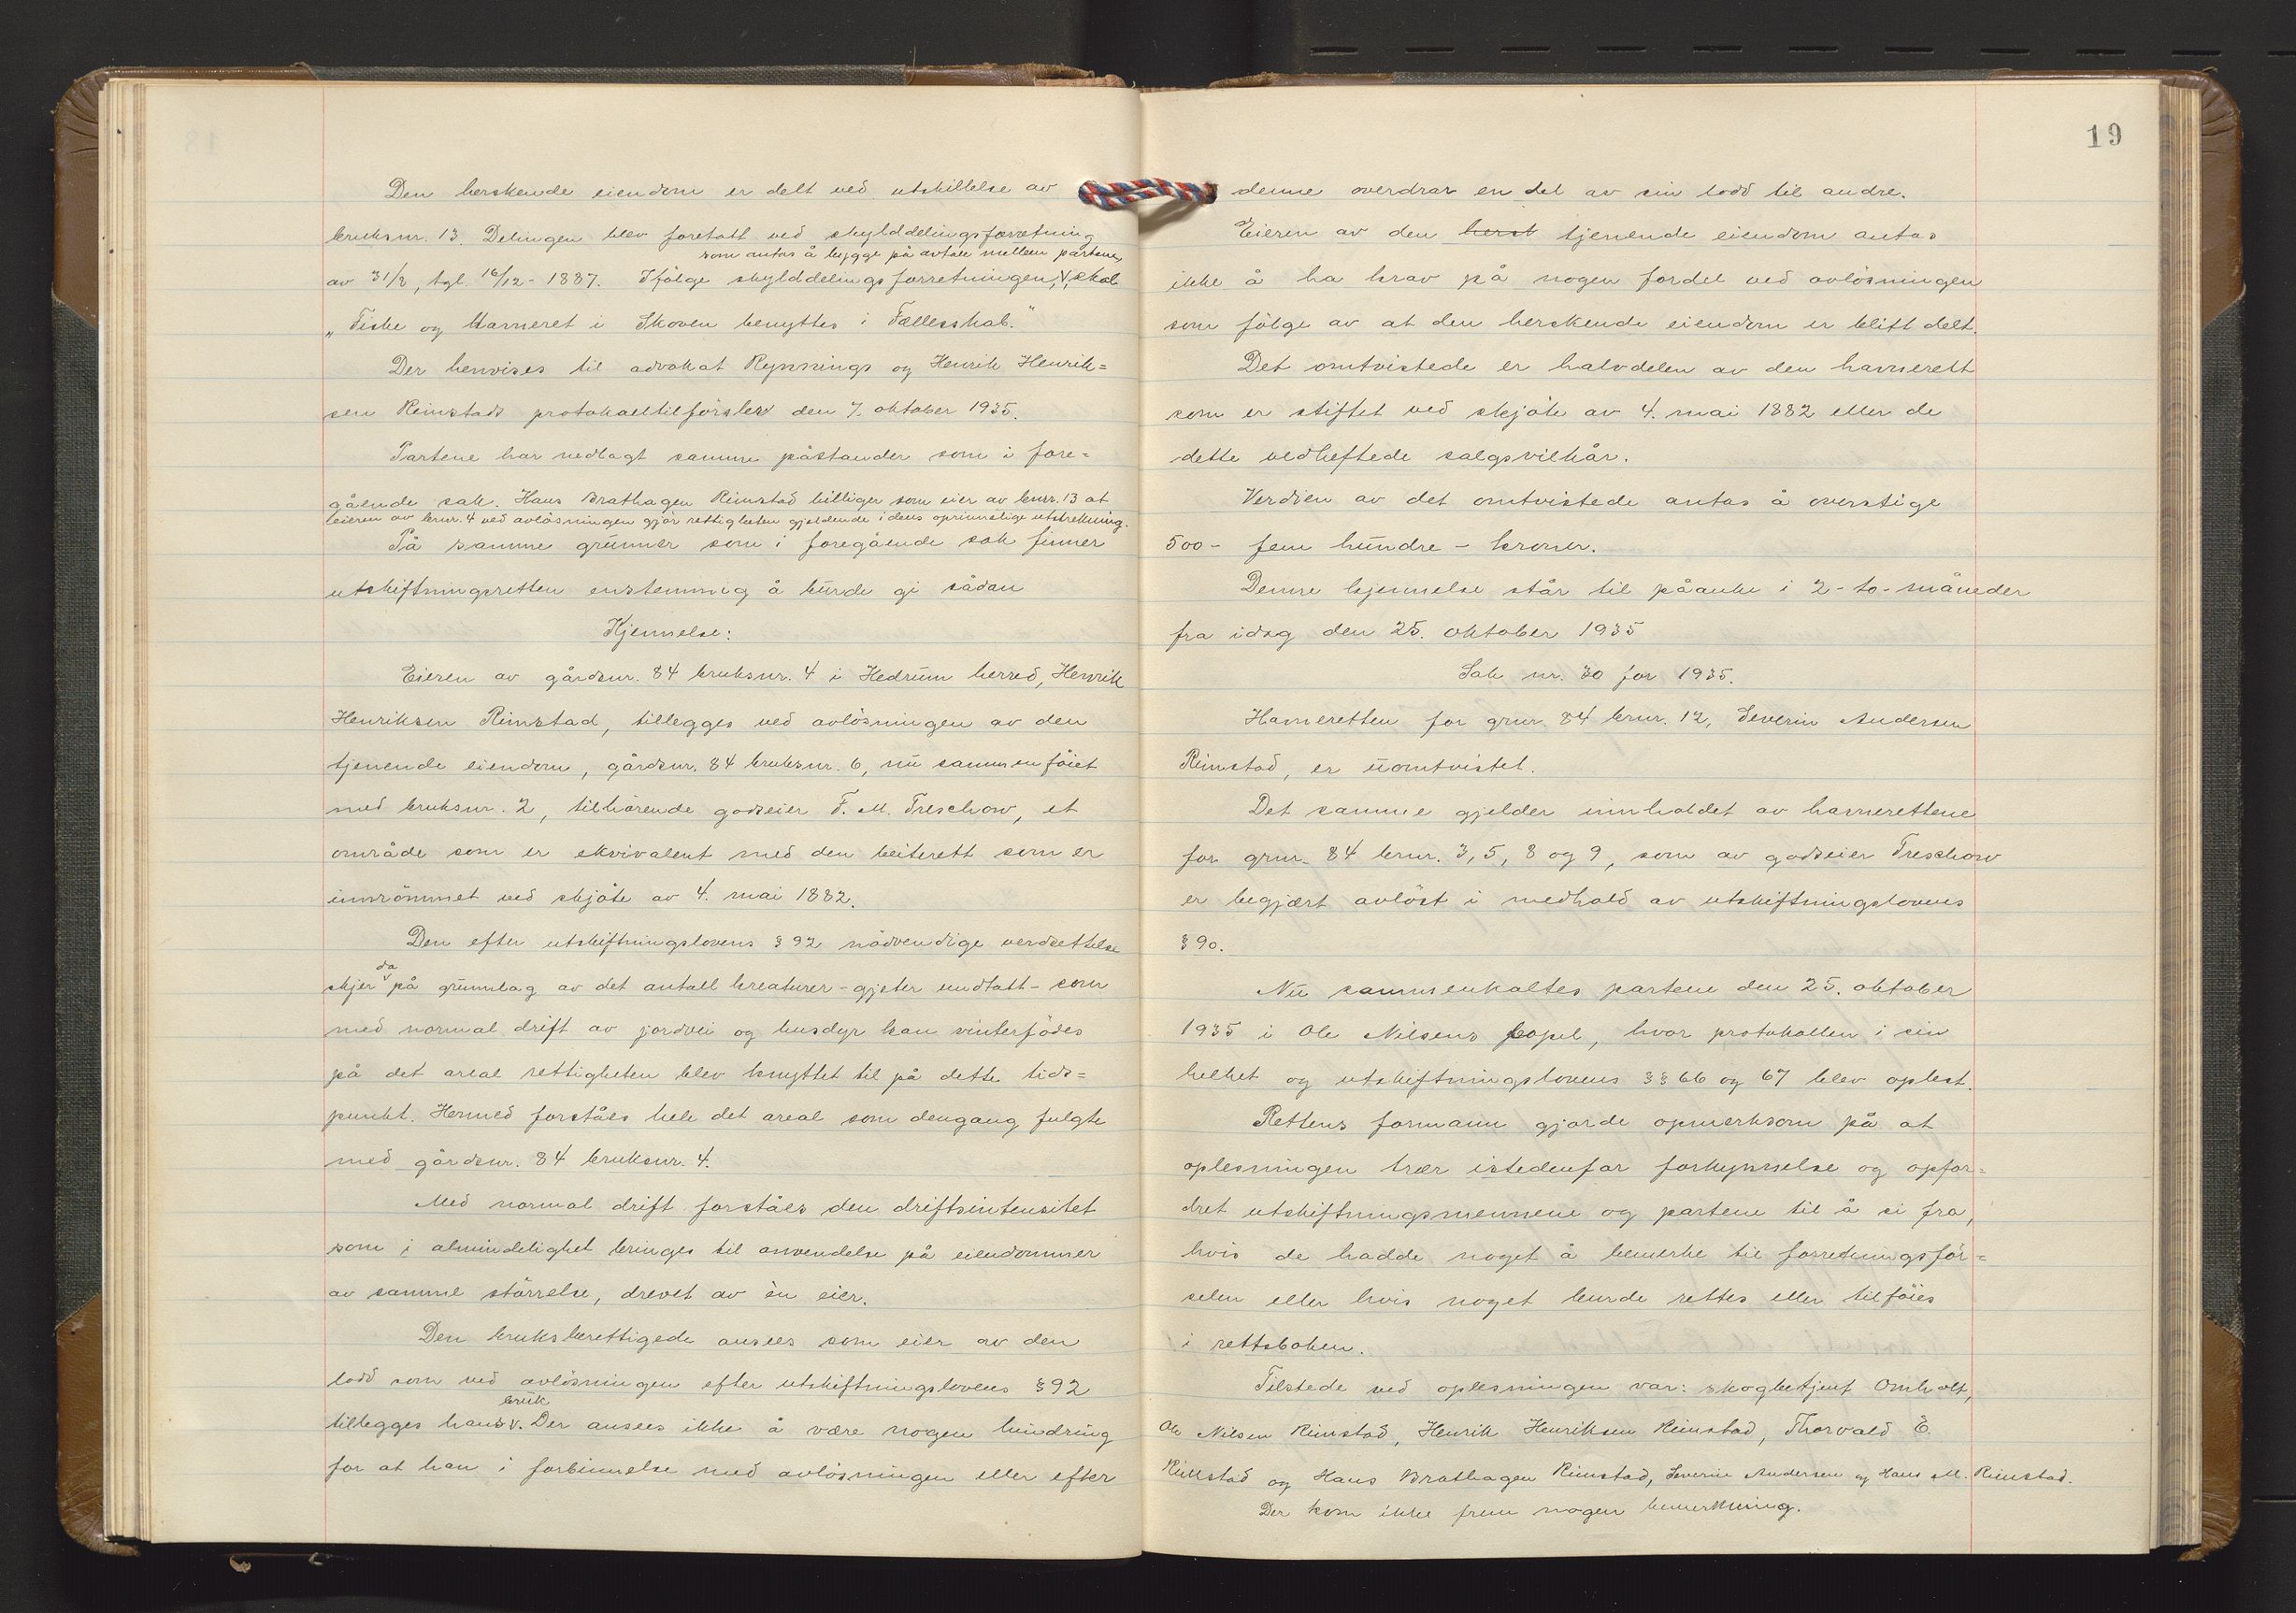 Den herskende eiendom er delt ved utskillelse av
bruksnr. 13. Delingen blev foretatt ved skylddelingsforretning
som antas å bygge på avtale mellem partene,
av 31/8, tgl. 16/12 - 1887. Ifølge skylddelingsforretningen, v, skal
"Fiske og Havneret i Skoven benyttes i Fællesskab."
Der henvises til advokat Rynnings og Henrik Henrik=
sen Rimstads protokolltilførsler den 7. oktober 1935.
Partene har nedlagt samme påstander som i fore=
gående sak. Hans Brathagen Rimstad billiger som eier av brnr. 13 at
eieren av brnr. 4 ved avløsningen gjør rettigheten gjeldende i dens oprinnelige utstrekning.
På samme grunner som i foregående sak finner
utskiftningsretten enstemmig å burde gi sådan
Kjennelse:
Eieren av gårdsnr. 84 bruksnr. 4 i Hedrum herred, Henrik
Henriksen Rimstad, tillegges ved avløsningen av den
tjenende eiendom, gårdsnr. 84 bruksnr. 6, nu sammenføiet
med bruksnr. 2, tilhørende godseier F. M. Treschow, et
område som er ekvivalent med den beiterett som er
innrømmet ved skjøte av 4. mai 1882.
Den efter utskiftningslovens § 92 nødvendige verdsettelse
da
skjer v på grunnlag av det antall kreaturer - gjeter undtatt - som
med normal drift av jordvei og husdyr kan vinterfødes
på det areal rettigheten blev knyttet til på dette tids=
punkt. Hermed forståes hele det areal som dengang fulgte
med gårdsnr. 84 bruksnr. 4.
Med normal drift forståes den driftsintensitet
som i almindelighet bringes til anvendelse på eiendommer
av samme størrelse, drevet av èn eier.
Den bruksberettigede ansees som eier av den
lodd som ved avløsningen efter utskiftningslovens § 92
bruk
tillegges hans v. Der ansees ikke å være nogen hindring
for at han i forbinnelse med avløsningen eller efter
19
denne overdrar en del av sin lodd til andre.
Eieren av den herst tjenende eiendom antas
ikke å ha krav på nogen fordel ved avløsningen
som følge av at den herskende eiendom er blitt delt.
Det omtvistede er halvdelen av den havnerett
som er stiftet ved skjøte av 4. mai 1882 eller de
dette vedheftede salgsvilkår.
Verdien av det omtvistede antas å overstige
500 - fem hundre - kroner.
Denne kjennelse står til påanke i 2 - to - måneder
fra idag den 25. oktober 1935
Sak nr. 30 for 1935.
Havneretten for grnr. 84 brnr. 12, Severin Andersen
Rimstad, er uomtvistet.
Det samme gjelder innholdet av havnerettene
for grnr. 84 brnr. 3, 5, 8 og 9, som av godseier Treschow
er begjært avløst i medhold av utskiftningslovens
§ 90.
Nu sammenkaltes partene den 25. oktober
1935 i Ole Nilsens bopel, hvor protokollen i sin
helhet og utskiftningslovens §§ 66 og 67 blev oplest.
Rettens formann gjorde opmerksom på at
oplesningen trær istedenfor forkynnelse og opfor=
dret utskiftningsmennene og partene til å si fra,
hvis de hadde noget å bemerke til forretningsfør=
selen eller hvis noget burde rettes eller tilføies
i rettsboken.
Tilstede ved oplesningen var: skogbetjent Omholt,
Ole Nilsen Rimstad, Henrik Henriksen Rimstad, Thorvald E.
Rimstad og Hans Brathagen Rimstad, Severin Andersen og Hans M. Rimstad.
Der kom ikke frem nogen bemerkning.